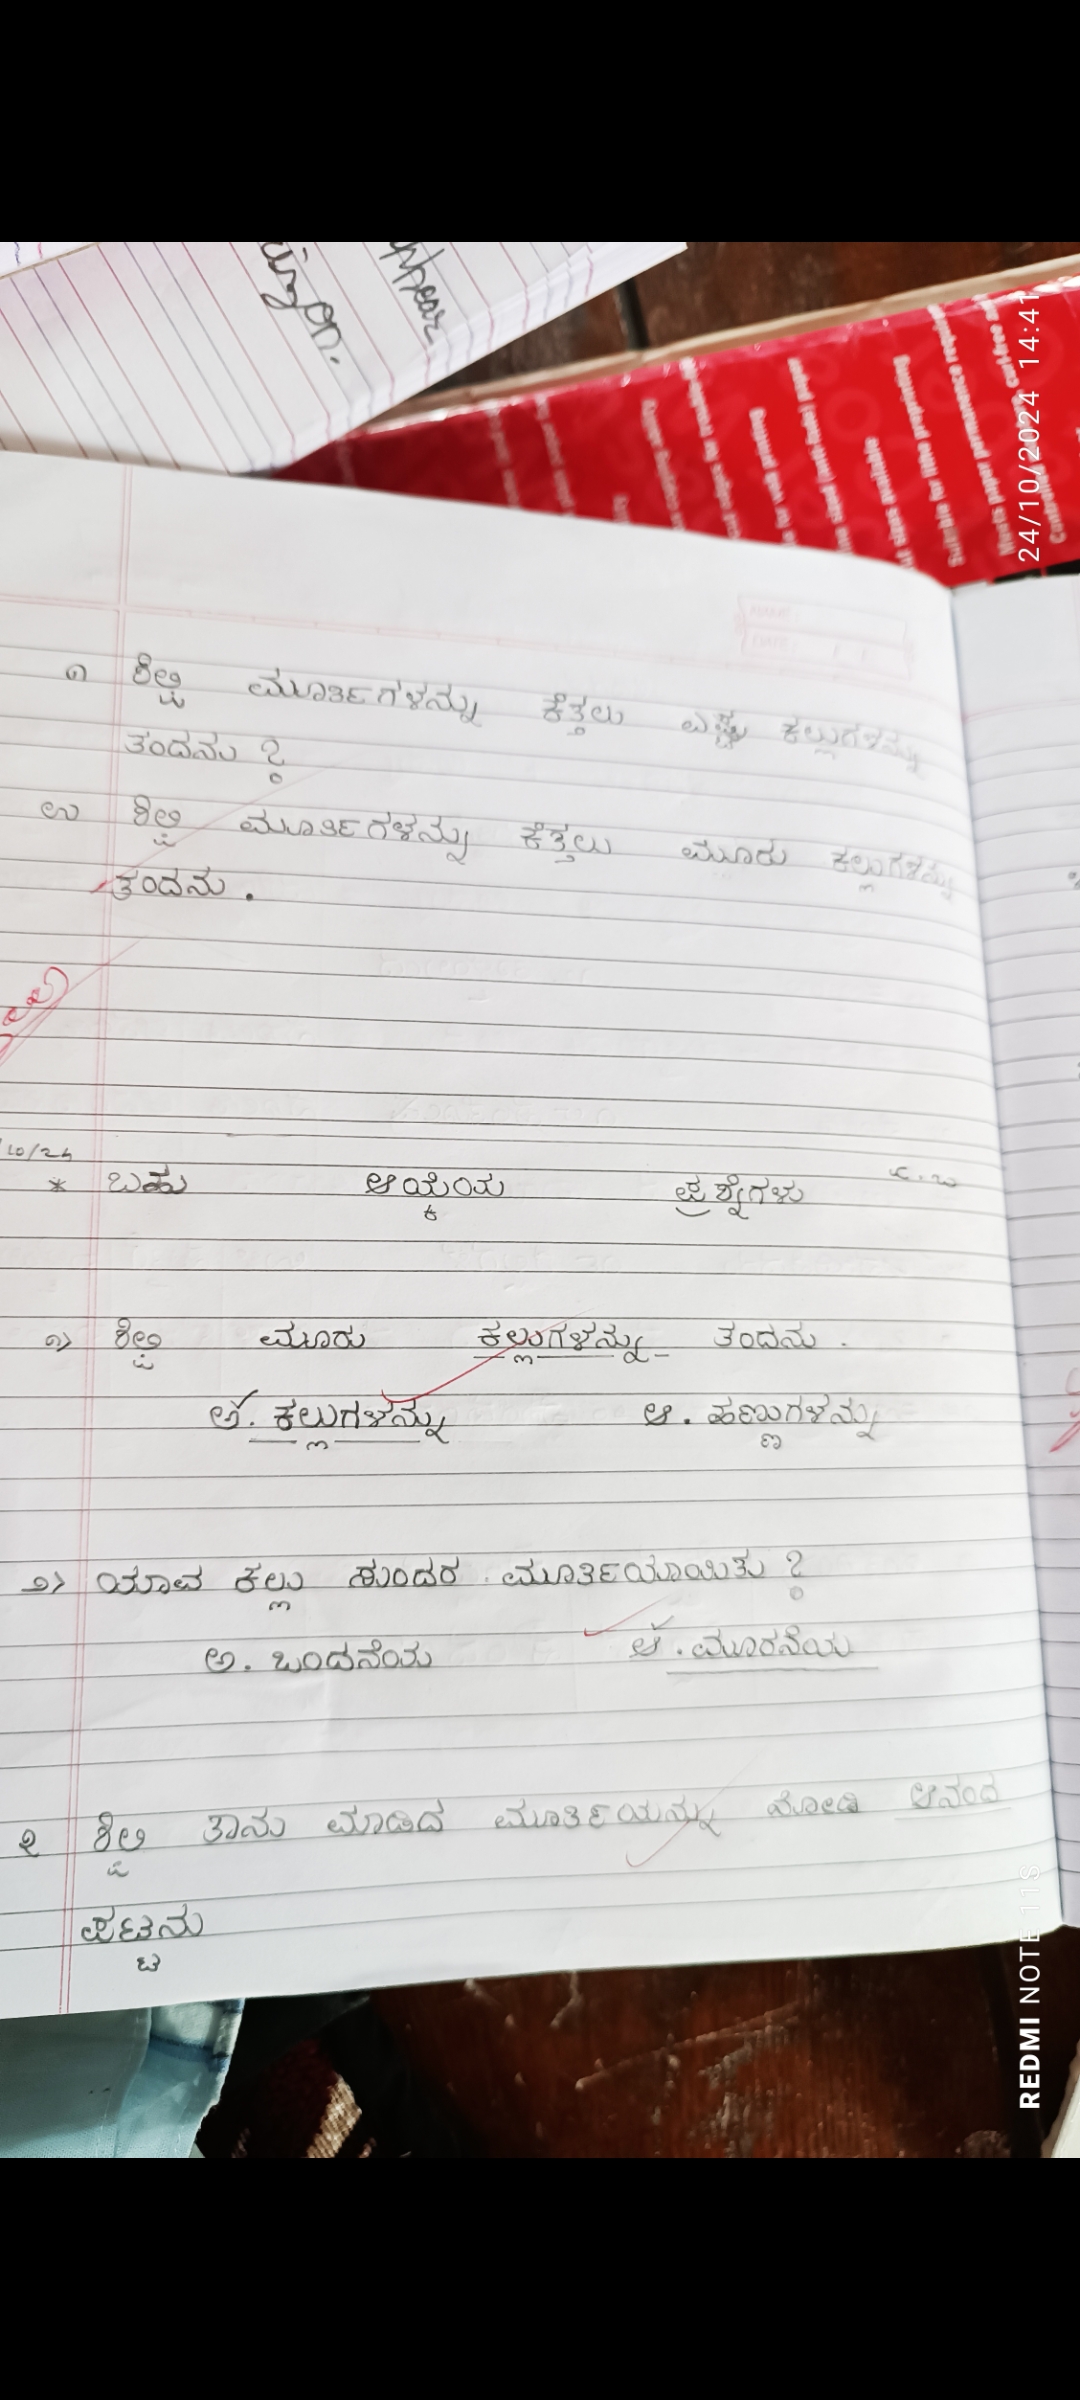 cizon.
appear
೧ ಶಿಲ್ಪಿ ಮೂರ್ತಿಗಳನ್ನು ಕೆತ್ತಲು ಎಷ್ಟು ಕಲ್ಲುಗಳನ್ನು
ತಂದನು ?
ಉ ಶಿಲ್ಪಿ ಮೂರ್ತಿಗಳನ್ನು ಕೆತ್ತಲು ಮೂರು ಕಲ್ಲುಗಳನ್ನು
ತಂದನು .
10/24
* ಬಹು ಆಯ್ಕೆಯ ಪ್ರಶ್ನೆಗಳು
೧) ಶಿಲ್ಪಿ ಮೂರು ಕಲ್ಲುಗಳನ್ನು ತಂದನು .
ಅ. ಕಲ್ಲುಗಳನ್ನು ಆ. ಹಣ್ಣುಗಳನ್ನು
೨) ಯಾವ ಕಲ್ಲು ಸುಂದರ ಮೂರ್ತಿಯಾಯಿತು ?
ಅ. ಒಂದನೆಯ ಆ. ಮೂರನೆಯ
೩ ಶಿಲ್ಪಿ ತಾನು ಮಾಡಿದ ಮೂರ್ತಿಯನ್ನು ನೋಡಿ ಆನಂದ
ಪಟ್ಟನು
24/10/2024 14:41
REDMI NOTE 11S